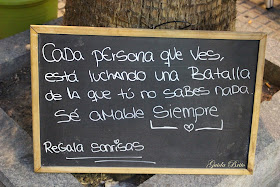 Cada persona que ves,
está luchando una Batalla
de la que tú no sabes nada
Sé amable siempre
Regala sonrisas
Guida Brito